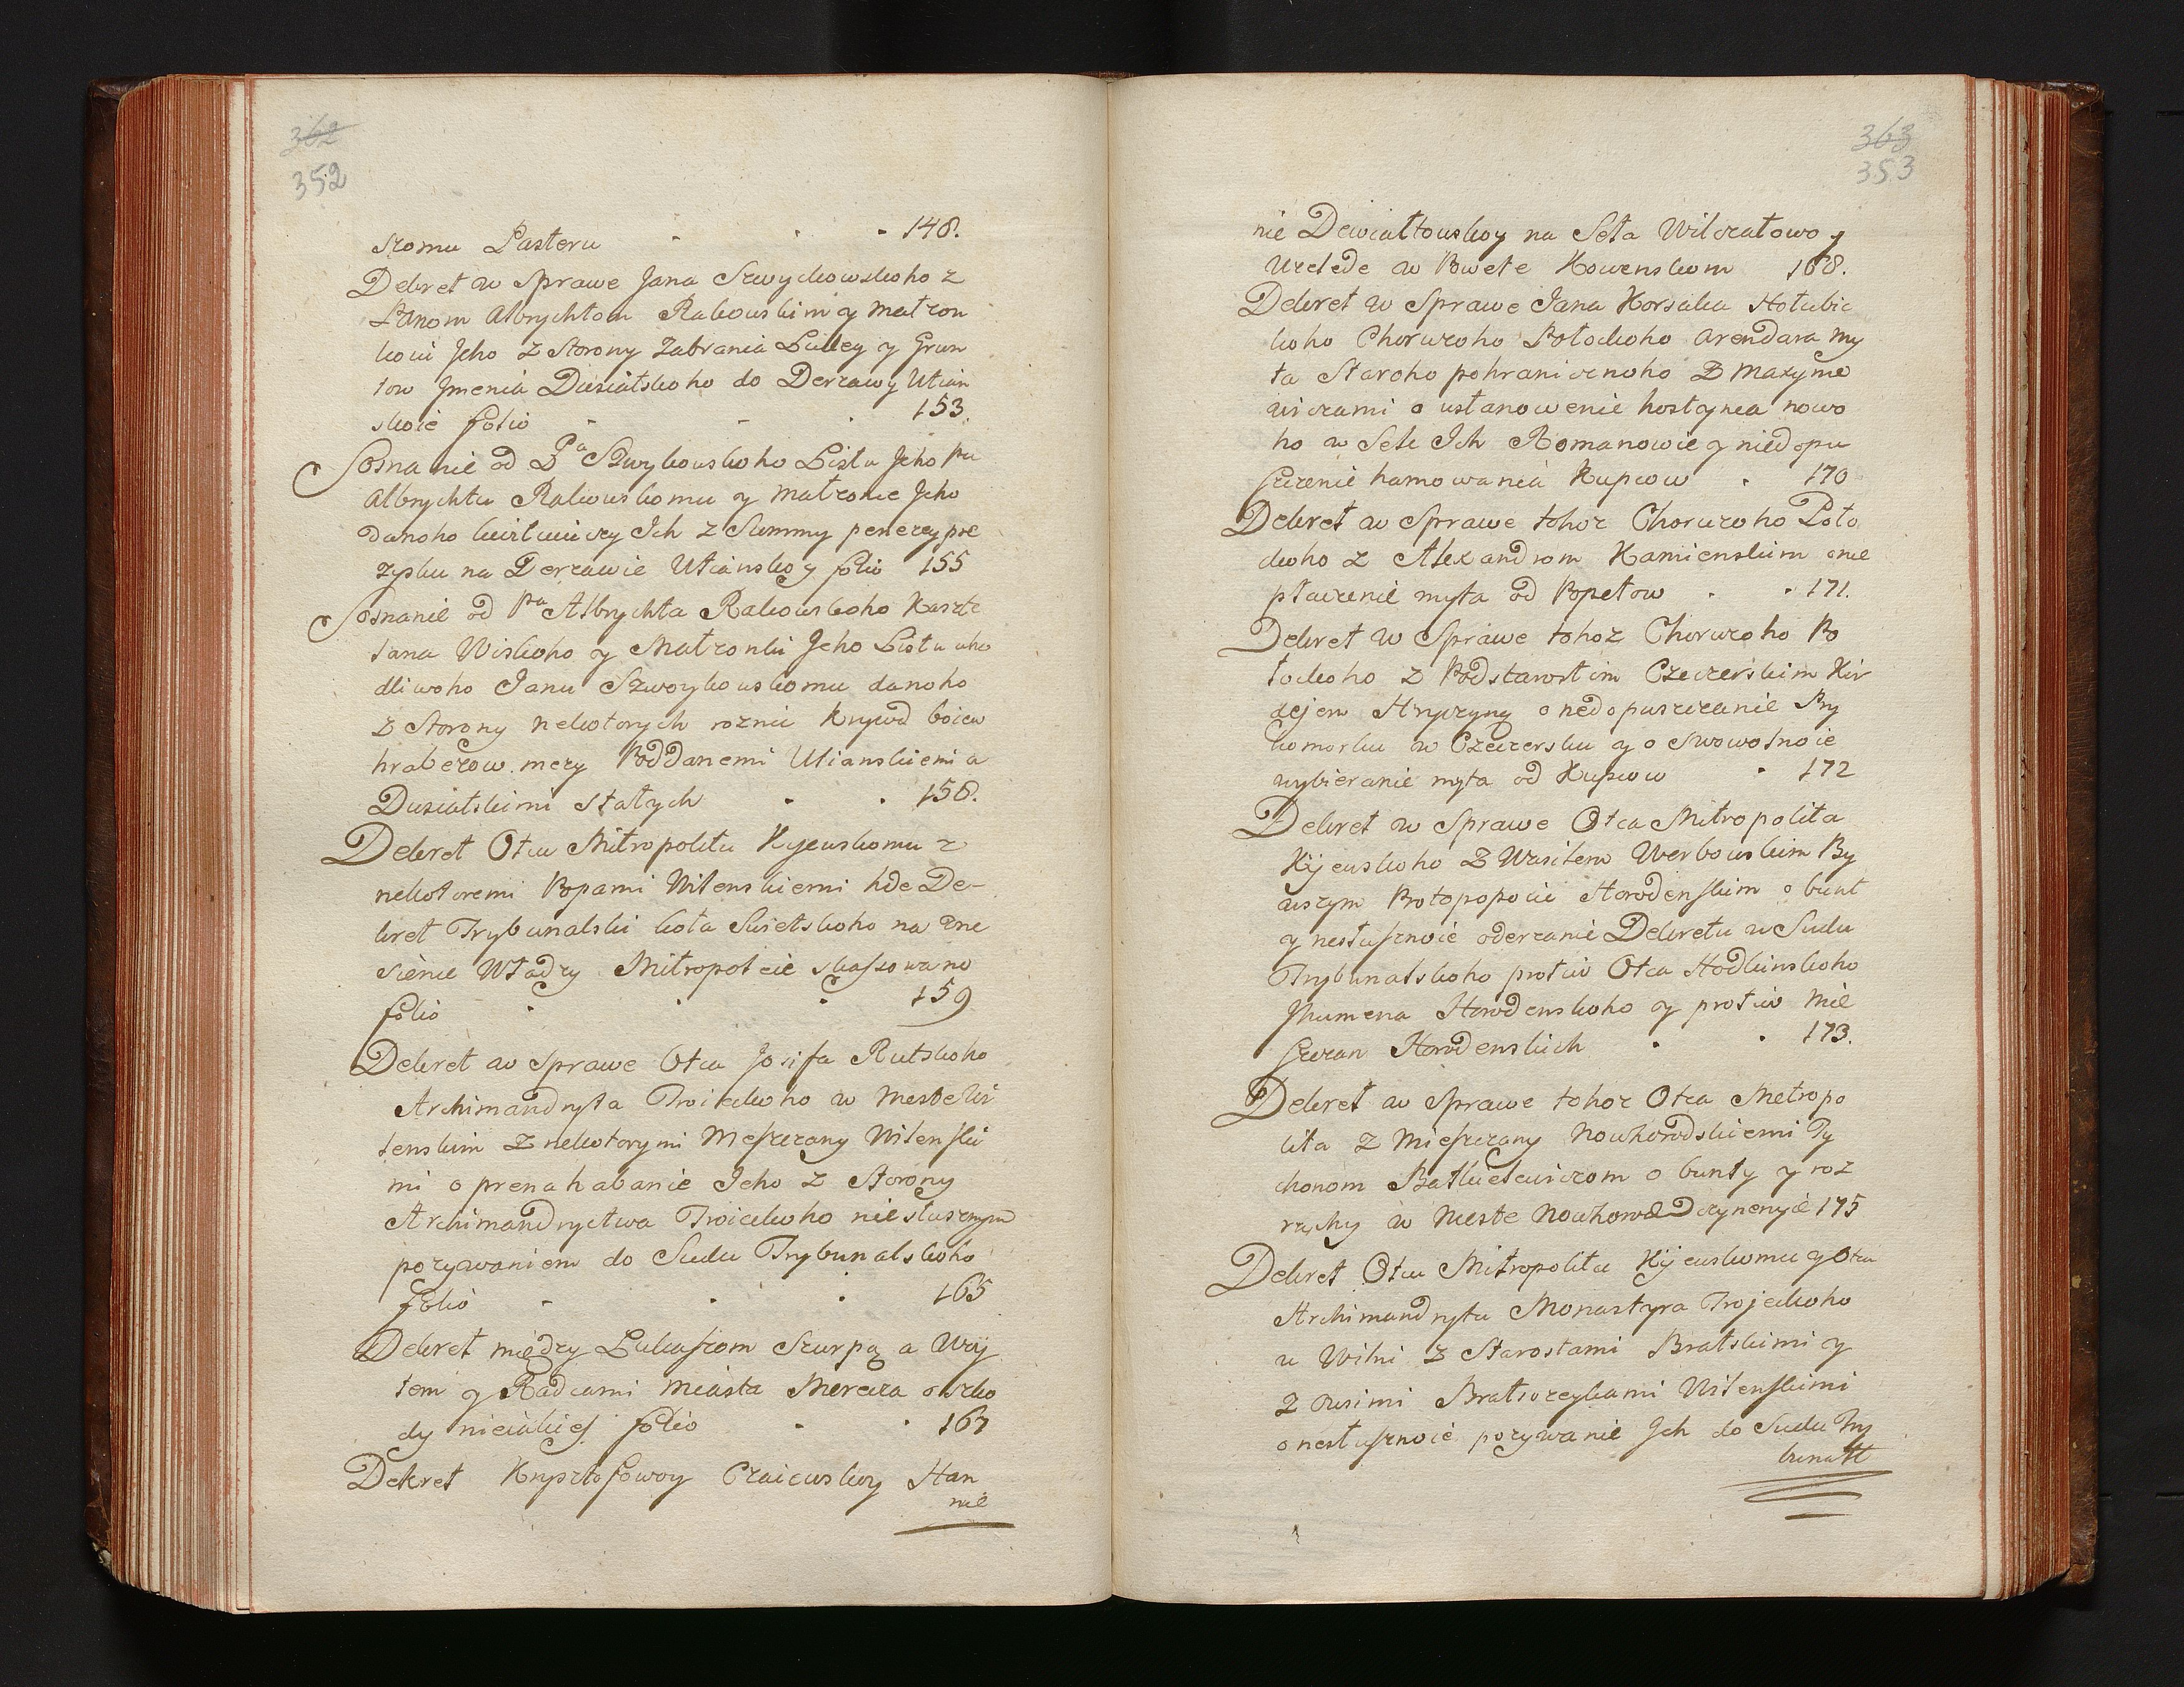 362
352
szomu Pasteru 148.
Dekret w Sprawe Jana Szwyykowskoho z
Panom Albrychtom Rakowskim y Matzon
koiu Jeho z Storony Zabrania Ludey y Grun
tow Jmenia Dusiatskoho do Derzawy Utian
skoie folio 153.
Soznanie od Pa Szwykouskoho Listu Jeho Pu
Albrychtu Rakouskomu y Matzonce Jeho
danoho kwituiuczy Ich z Summy penezy pre
zysku na Derzawie Utianskoy folio 155
Soznanie od Pa Albrychta Rakouskoho Kaszte
lana Wiskoho y Matzonki Jeho Listu uho
dliwoho Janu Szwoykouskomu danoho
z Storony nekotorych roznic Krywd boiew
hrabezow mezy Poddanemi Utianskiemi a
Dusiatskimi stalych 156.
Dekret Otcu Mitropolitu Kyewskomu z
nekotoremi Popami Wilenskiemi hde De-
kret Trybunalski kola Swietskoho na zne
sienie Władzy Mitropolcie skassowano
folio 159
Dekret w Sprawe Otca Josifa Rutskoho
Archimandryta Troieckoho w Meste Wi
lenskim z nekotorymi Meszczany Wilenski
mi o prenahabanie Jeho z Storony
Archimandryctwa Troickoho niesłusznym
pozywaniem do Sudu Trybunalskoho
folio 165
Dekret między Łukaszom Szurpą a Wóy
tem y Radcami Miasta Merecza o szko
dy nieiakiej folio 167
Dekret Krysztofowoy Czaiewskoy Han
nie
363
353
nie Dewiałtowskoy na Seła Wilczałowo y
Urelede w Powete Kowenskom 168.
Dekret w Sprawe Jana Korsaka Hołubic
koho Choruzoho Połockoho Arendara my
ta Staroho pohranicznoho z Maxyme
wiczami o ustanowenie hostynca nowo
ho w Sele Ich Romanowie y niedopu
szczenie hamowania Kupcow 170
Dekret w Sprawe tohoz Choruzoho Poło
ckoho z Alexandrom Kamienskim o nie
płaczenie myta od Popełow 171.
Dekret w Sprawe tohoz Choruzoho Po
łockoho z Podstarostim Czeczerskim Kir
dejem Hryczyny o nedopuszczanie Pry
komorku w Czeczersku y o Swowolnoie
wybieranie myta od Kupcow 172
Dekret w Sprawe Otca Mitropolita
Kijewskoho z Wasilem Werbouskim By
wszym Protopopoiu Horodenskim o bunt
y nesłusznoie oderzanie Dekretu w Sudu
Trybunalskoho protiw Otca Hodkinskoho
Jhumena Horodenskoho y protiw Mie
szczan Horodenskich 173.
Dekret w Sprawe tohoz Otca Metropo
lita z Mieszczany Nowhorodskiemi Ty
chonom Batkiewiczom o bunty y roz
ruchy w Meste Nowhorod Dzynenyie 175
Dekret Otcu Mitropolitu Kijewskomu y Otcu
Archimandrytu Monastyra Trojeckoho
u Wilni z Starostami Bratskimi y
z wsimi Bratszczykami Wilenskimi
o nesłusznoie pozywanie Jch do Sudu Try
bunału